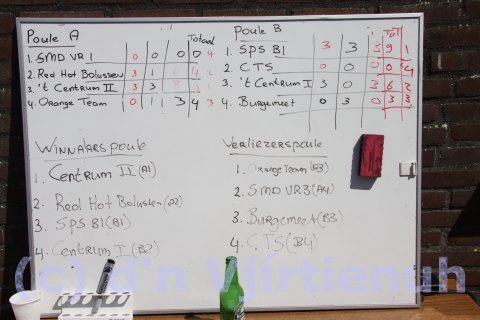 Poule A
Totaal
1. SMD VR 1 0 0 0 0 4
2. Red Hot Bolussen 3 1
3. 't Centrum II 3 3
4. Orange Team 0 1 3 4 3
Poule B
Tot
1. SPS B1 3 3 3 9 1
2. CTS 0 0 0 0 4
3. 't Centrum I 3 0 3 6 2
4. Burgemeet 0 3 0 3 3
Winnaarspoule
1. Centrum II (A1)
2. Red Hot Bolussen (A2)
3. SPS B1 (B1)
4. Centrum I (B2)
Verliezerspoule
1. Orange Team (A3)
2. SMD VR3 (A4)
3. Burgemeet (B3)
4. CTS (B4)
(c) d'n Vjirtienuh